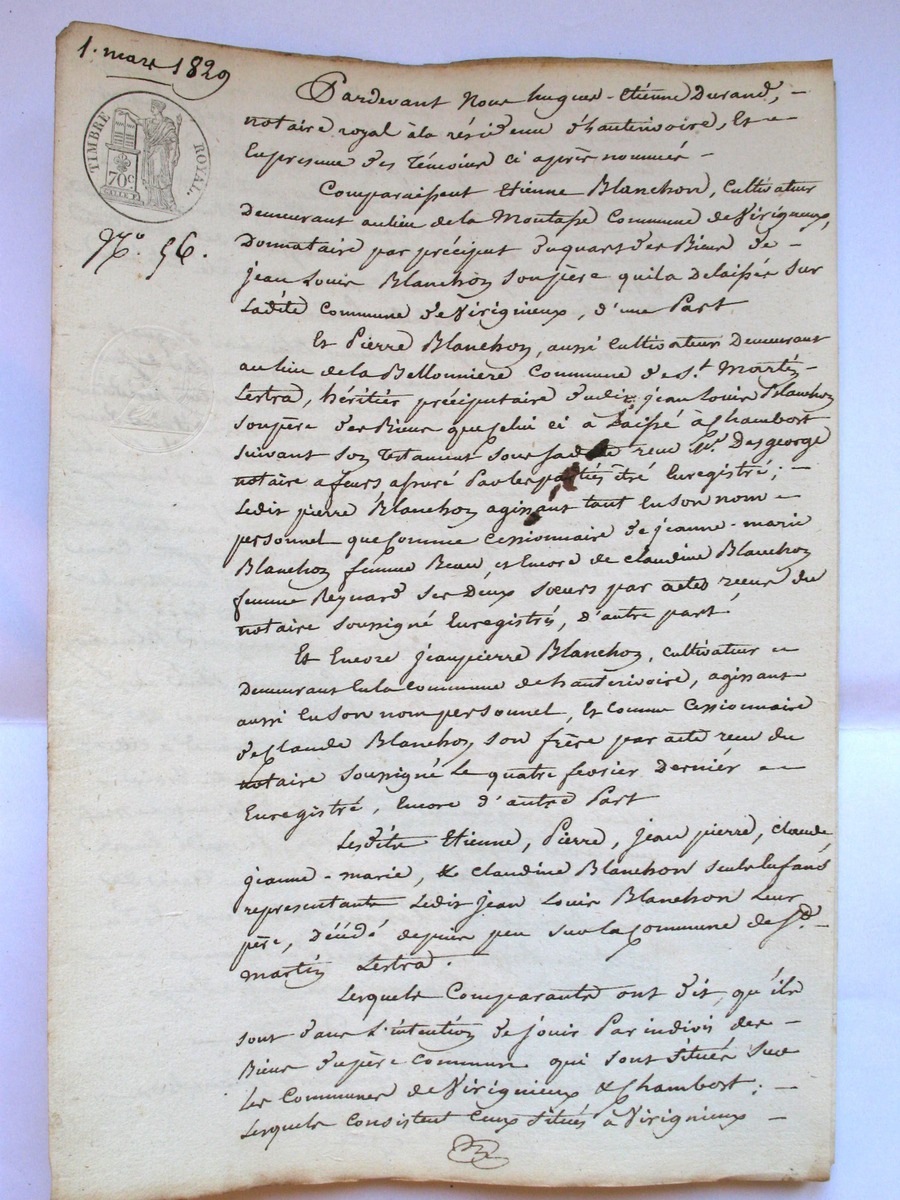 1. mars 1829
TIMBRE ROYAL.
70c
N.o 56.
Pardevant Nous hugues-Etienne Durand,
notaire royal à la résidence d'hauterivoire, Et
En presence des Témoins ci après nommés
Comparaissent Etienne Blanchon, Cultivateur
Demeurant au lieu de la Montasse Commune de Virigneux,
Donnataire par préciput du quart des Biens de
jean Louis Blanchon son père qu'il a delaissés sur
Ladite Commune de Virigneux, d'une Part
Et Pierre Blanchon, aussi Cultivateur Demeurant
au lieu de la Bellonnière Commune de St. Martin
Lestra, héritier préciputaire dudit jean Louis Blanchon
son père des Biens que celui ci à Laissé à Chambost
suivant son Testament sous sa date reçu Me. Desgeorge
notaire a feurs assuré Par les parties être Enregistré;
Ledit pierre Blanchon agissant tant En son nom
personnel que Comme Cessionnaire de jeanne-marie
Blanchon femme Beau, et Encore de Claudine Blanchon
femme Reynard ses Deux sœurs par actes recus du
notaire soussigné Enregistrés, d'autre part
Et Encore jean pierre Blanchon, Cultivateur
Demeurant En la Commune de hauterivoire, agissant
aussi En son nom personnel, Et Comme Cessionnaire
de Claude Blanchon son frère par acte recu du
notaire soussigné Le quatre fevrier Dernier
Enregistré, Encore d'autre Part
Lesdits Etienne, Pierre, jean pierre, Claude,
jeanne-marie, & Claudine Blanchon seuls Enfans
representants Ledit jean Louis Blanchon Leur
père, Décédé depuis peu sur la Commune de St.
martin Lestrad.
Lesquels Comparants ont dit, qu'ils
sont dans L'intention de jouir Par indivis des
Biens du père commun qui sont situés sur
Les Communes de Virigneux & Chambost;
Lesquels Consistent Ceux situés à Virigneux